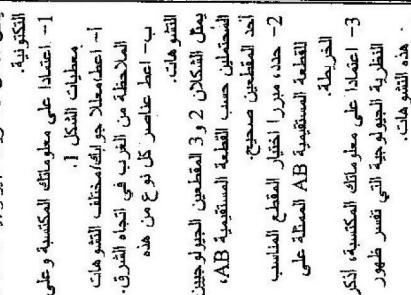 التكتونية.
1- اعتمادا على معلوماتك المكتسبة وعلى
معطيات الشكل 1.
أ- اعط/معللا جوابك/مختلف التشوهات
الملاحظة من الغرب في اتجاه الشرق.
ب- اعط عناصر كل نوع من هذه
التشوهات.
يمثل الشكلان 2 و 3 المقطعين الجيولوجيين
المحتملين حسب القطعة المستقيمية AB،
أحد المقطعين صحيح.
2- حدد، مبررا اختيار المقطع المناسب
القطعة المستقيمية AB الممثلة على
الخريطة.
3- اعتمادا على معلوماتك المكتسبة، اذكر
النظرية الجيولوجية التي تفسر ظهور
هذه التشوهات.